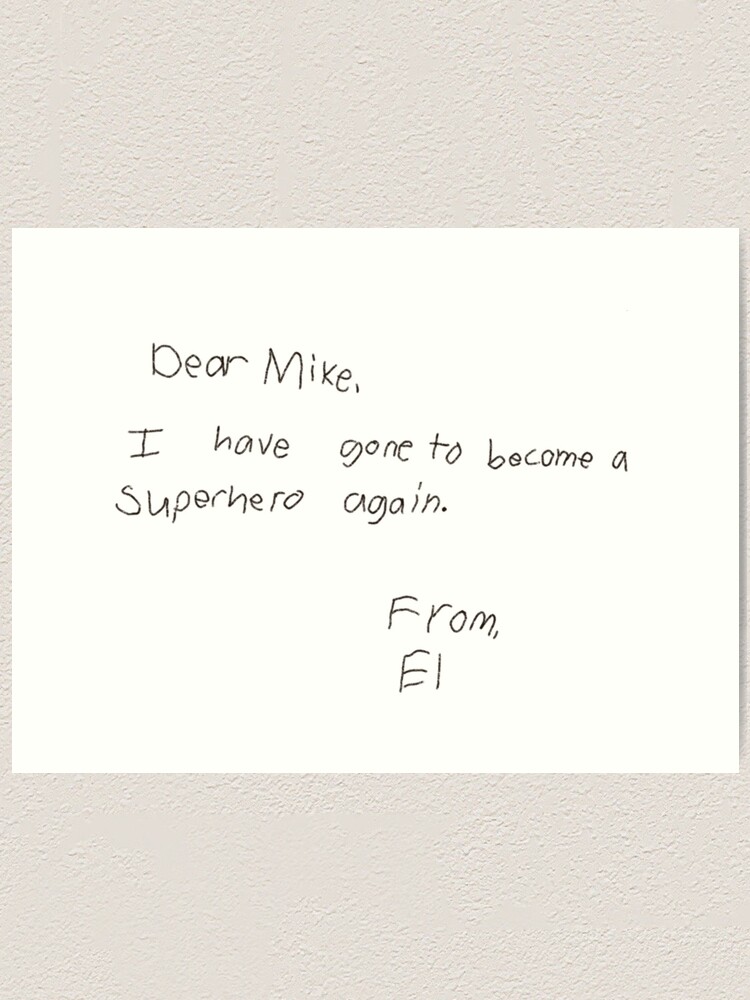 Dear Mike,
I have gone to become a
Superhero again.
From,
El